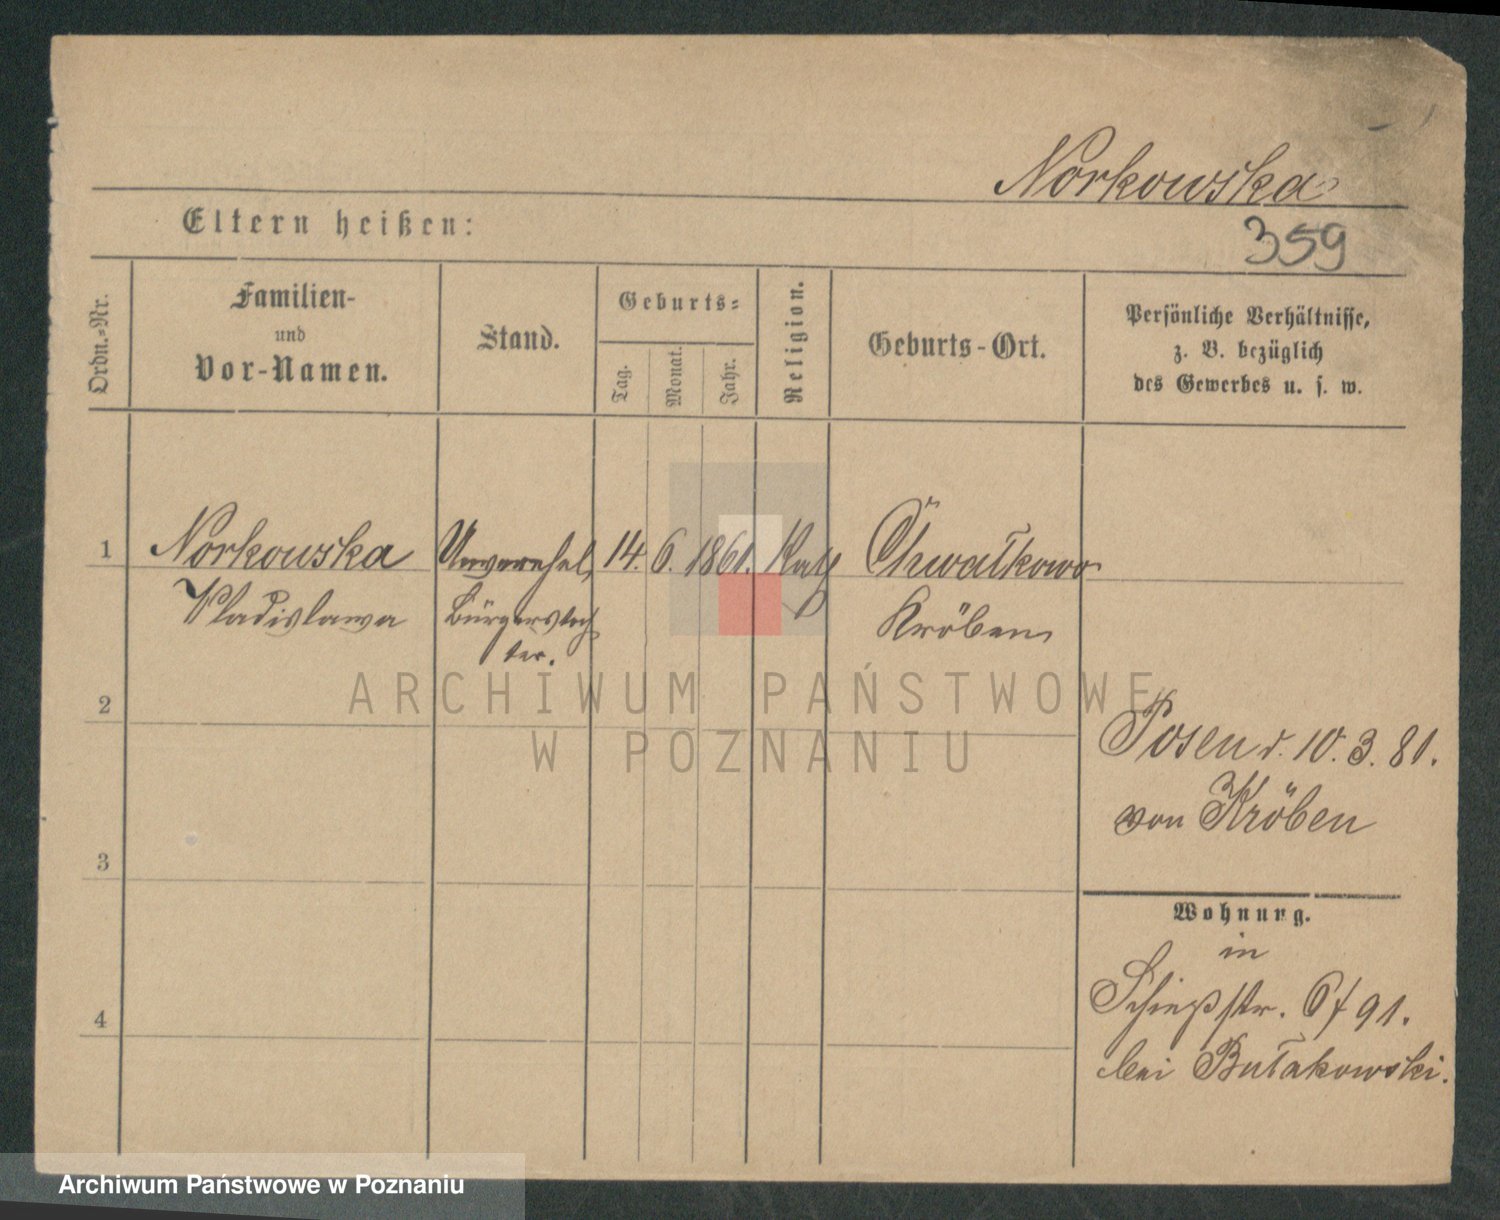 Norkowska
Eltern heißen:
359
Ordn.-Nr.
Familien-
und
Vor-Namen.
Stand.
Geburts-
Tag.
Monat.
Jahr.
Religion.
Geburts-Ort.
Persönliche Verhältnisse,
z. B. bezüglich
des Gewerbes u. s. w.
1 Norkowska Unverehel. 14. 6. 1861. Kath Chwałkowo
Vladislawa Bürgerstoch
ter. Kröben
2
Posen d. 10. 3. 81.
von Kröben
3
Wohnung.
in
Schießstr. 6/91.
4
bei Bułakowski.
ARCHIWUM PAŃSTWOWE
W POZNANIU
Archiwum Państwowe w Poznaniu